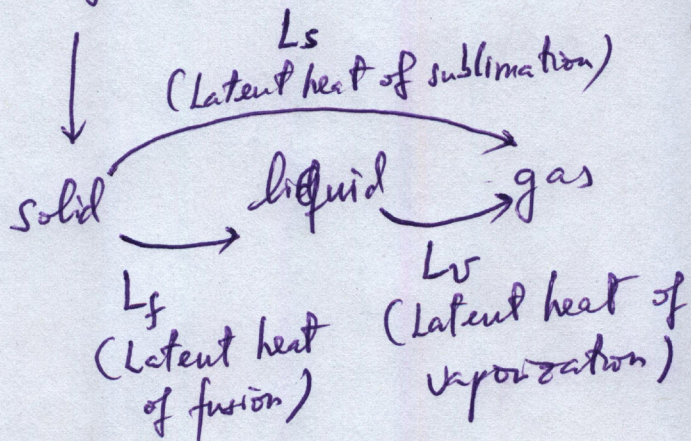 Ls
(Latent heat of sublimation)
solid
liquid
gas
Lf
(Latent heat
of fusion)
Lv
(Latent heat of
vaporization)